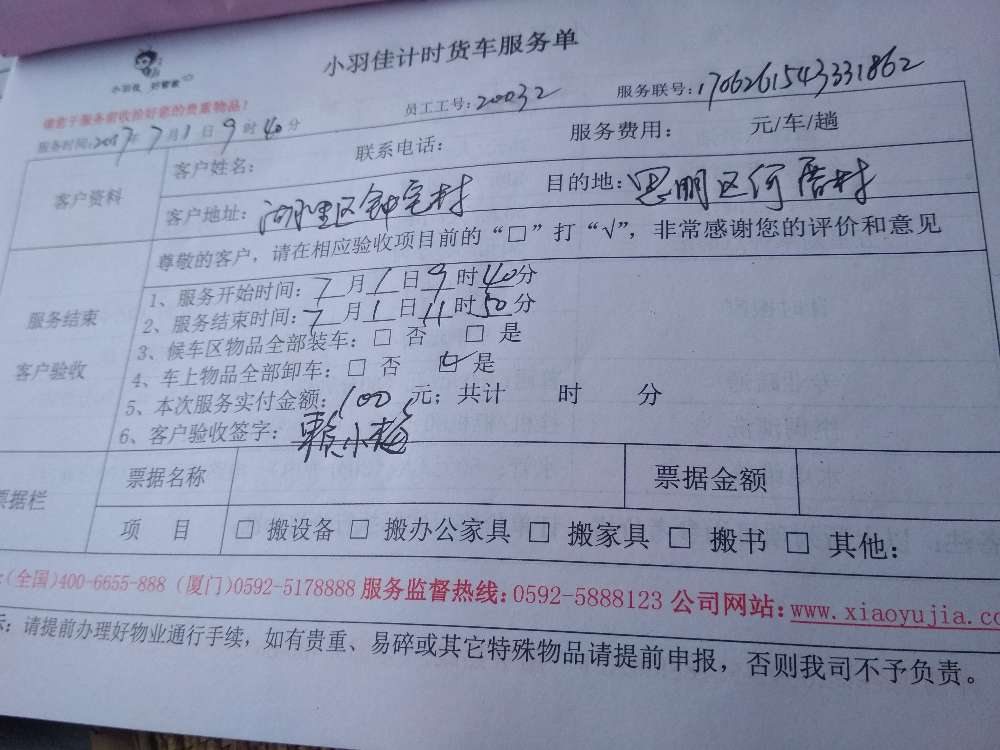 小羽佳计时货车服务单
小羽佳 好管家
请您于服务前收拾好您的贵重物品！
员工工号：20032
服务联号：170626154333 1862
服务时间：2017年7月1日9时40分
客户资料
客户姓名：
联系电话：
服务费用： 元/车/趟
客户地址：湖里区钟宅村
目的地：思明区何厝村
尊敬的客户，请在相应验收项目前的“□”打“√”，非常感谢您的评价和意见
服务结束
客户验收
1、服务开始时间：7月1日9时40分
2、服务结束时间：7月1日11时50分
3、候车区物品全部装车：□ 否 □ 是
4、车上物品全部卸车：□ 否 ☑ 是
5、本次服务实付金额：100元；共计 时 分
6、客户验收签字：赖小梅
票据栏
票据名称
票据金额
项 目
□ 搬设备 □ 搬办公家具 □ 搬家具 □ 搬书 □ 其他：
：(全国)400-6655-888 (厦门)0592-5178888 服务监督热线：0592-5888123 公司网站：www.xiaoyujia.co
示：请提前办理好物业通行手续，如有贵重、易碎或其它特殊物品请提前申报，否则我司不予负责。